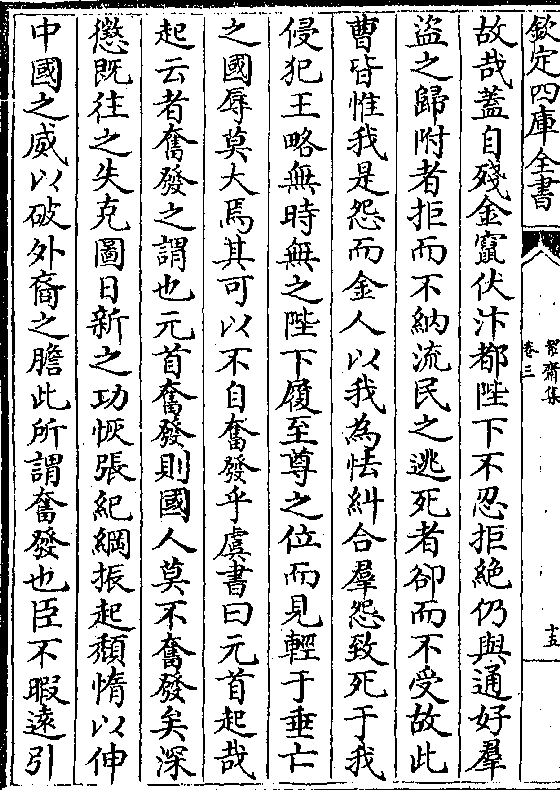 欽定四庫全書
絜齋集
卷三
十五
故哉蓋自殘金竄伏汴都陛下不忍拒絶仍與通好羣
盜之歸附者拒而不納流民之逃死者卻而不受故此
曹皆惟我是怨而金人以我為怯糾合羣怨致死于我
侵犯王略無時無之陛下履至尊之位而見輕于垂亡
之國辱莫大焉其可以不自奮發乎虞書曰元首起哉
起云者奮發之謂也元首奮發則國人莫不奮發矣深
懲既往之失克圖日新之功恢張紀綱振起頽惰以伸
中國之威以破外裔之膽此所謂奮發也臣不暇遠引